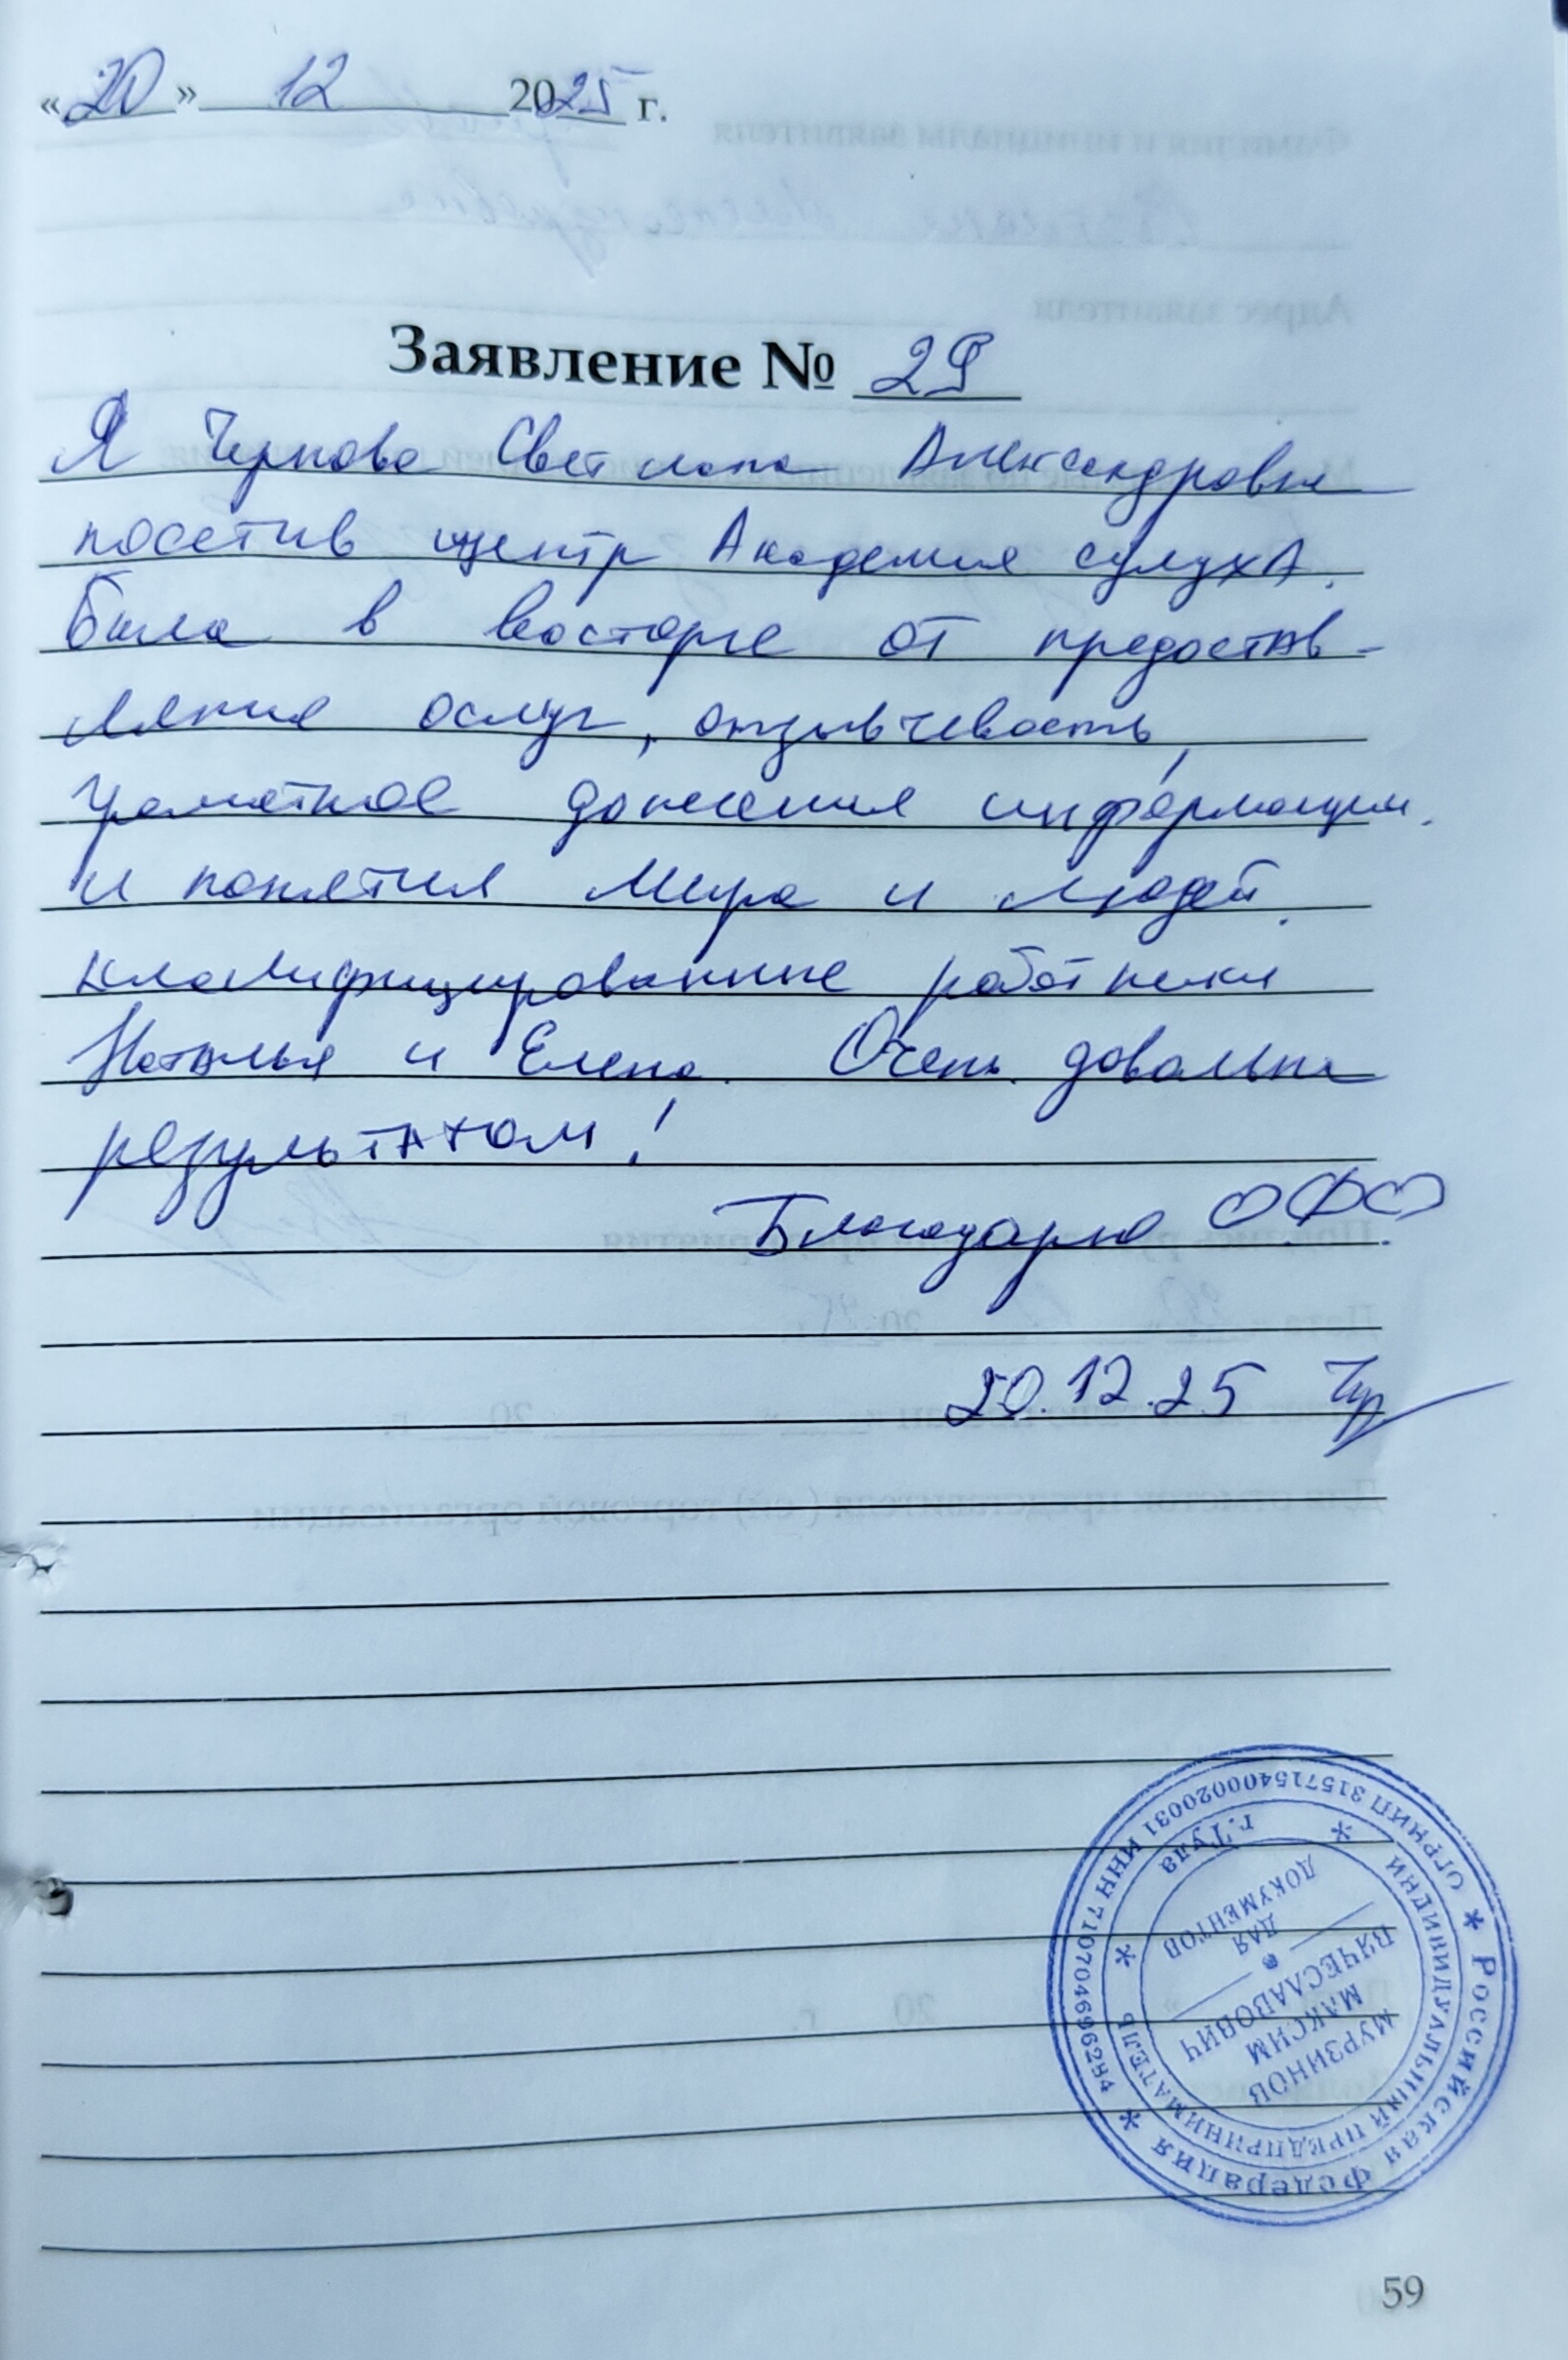 «20» 12 2025 г.
Заявление № 29
Я Чернова Светлана Александровна
посетив центр Академия слухА.
Была в восторге от предостав-
ляния ослуг, отзывчевость,
грамотное донесения информации.
и понятия Мира и людей.
клалифицированные работники
Наталья и Елена. Очень довольна
результатом!
Благодарю
20.12.25
Российская Федерация * ОГРНИП 315715400020031 ИНН 710704696284 *
ИНДИВИДУАЛЬНЫЙ ПРЕДПРИНИМАТЕЛЬ * г.Тула *
МУРЗИНОВ
МАКСИМ
ВЯЧЕСЛАВОВИЧ
ДЛЯ
ДОКУМЕНТОВ
59